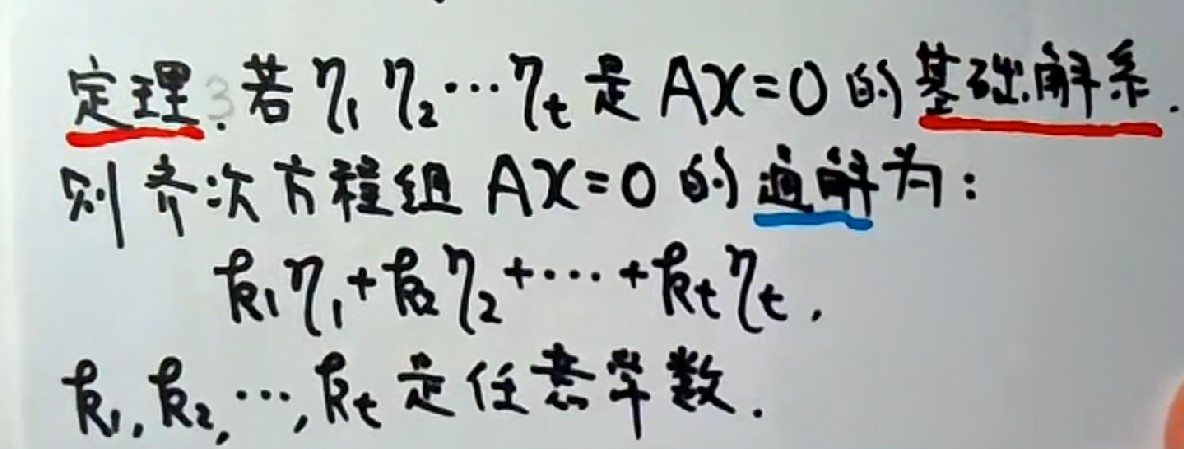 定理3. 若 η₁ η₂…ηₜ 是 AX=0 的基础解系.
则齐次方程组 AX=0 的通解为:
k₁η₁+k₂η₂+…+kₜηₜ,
k₁,k₂,…,kₜ 是任意常数.